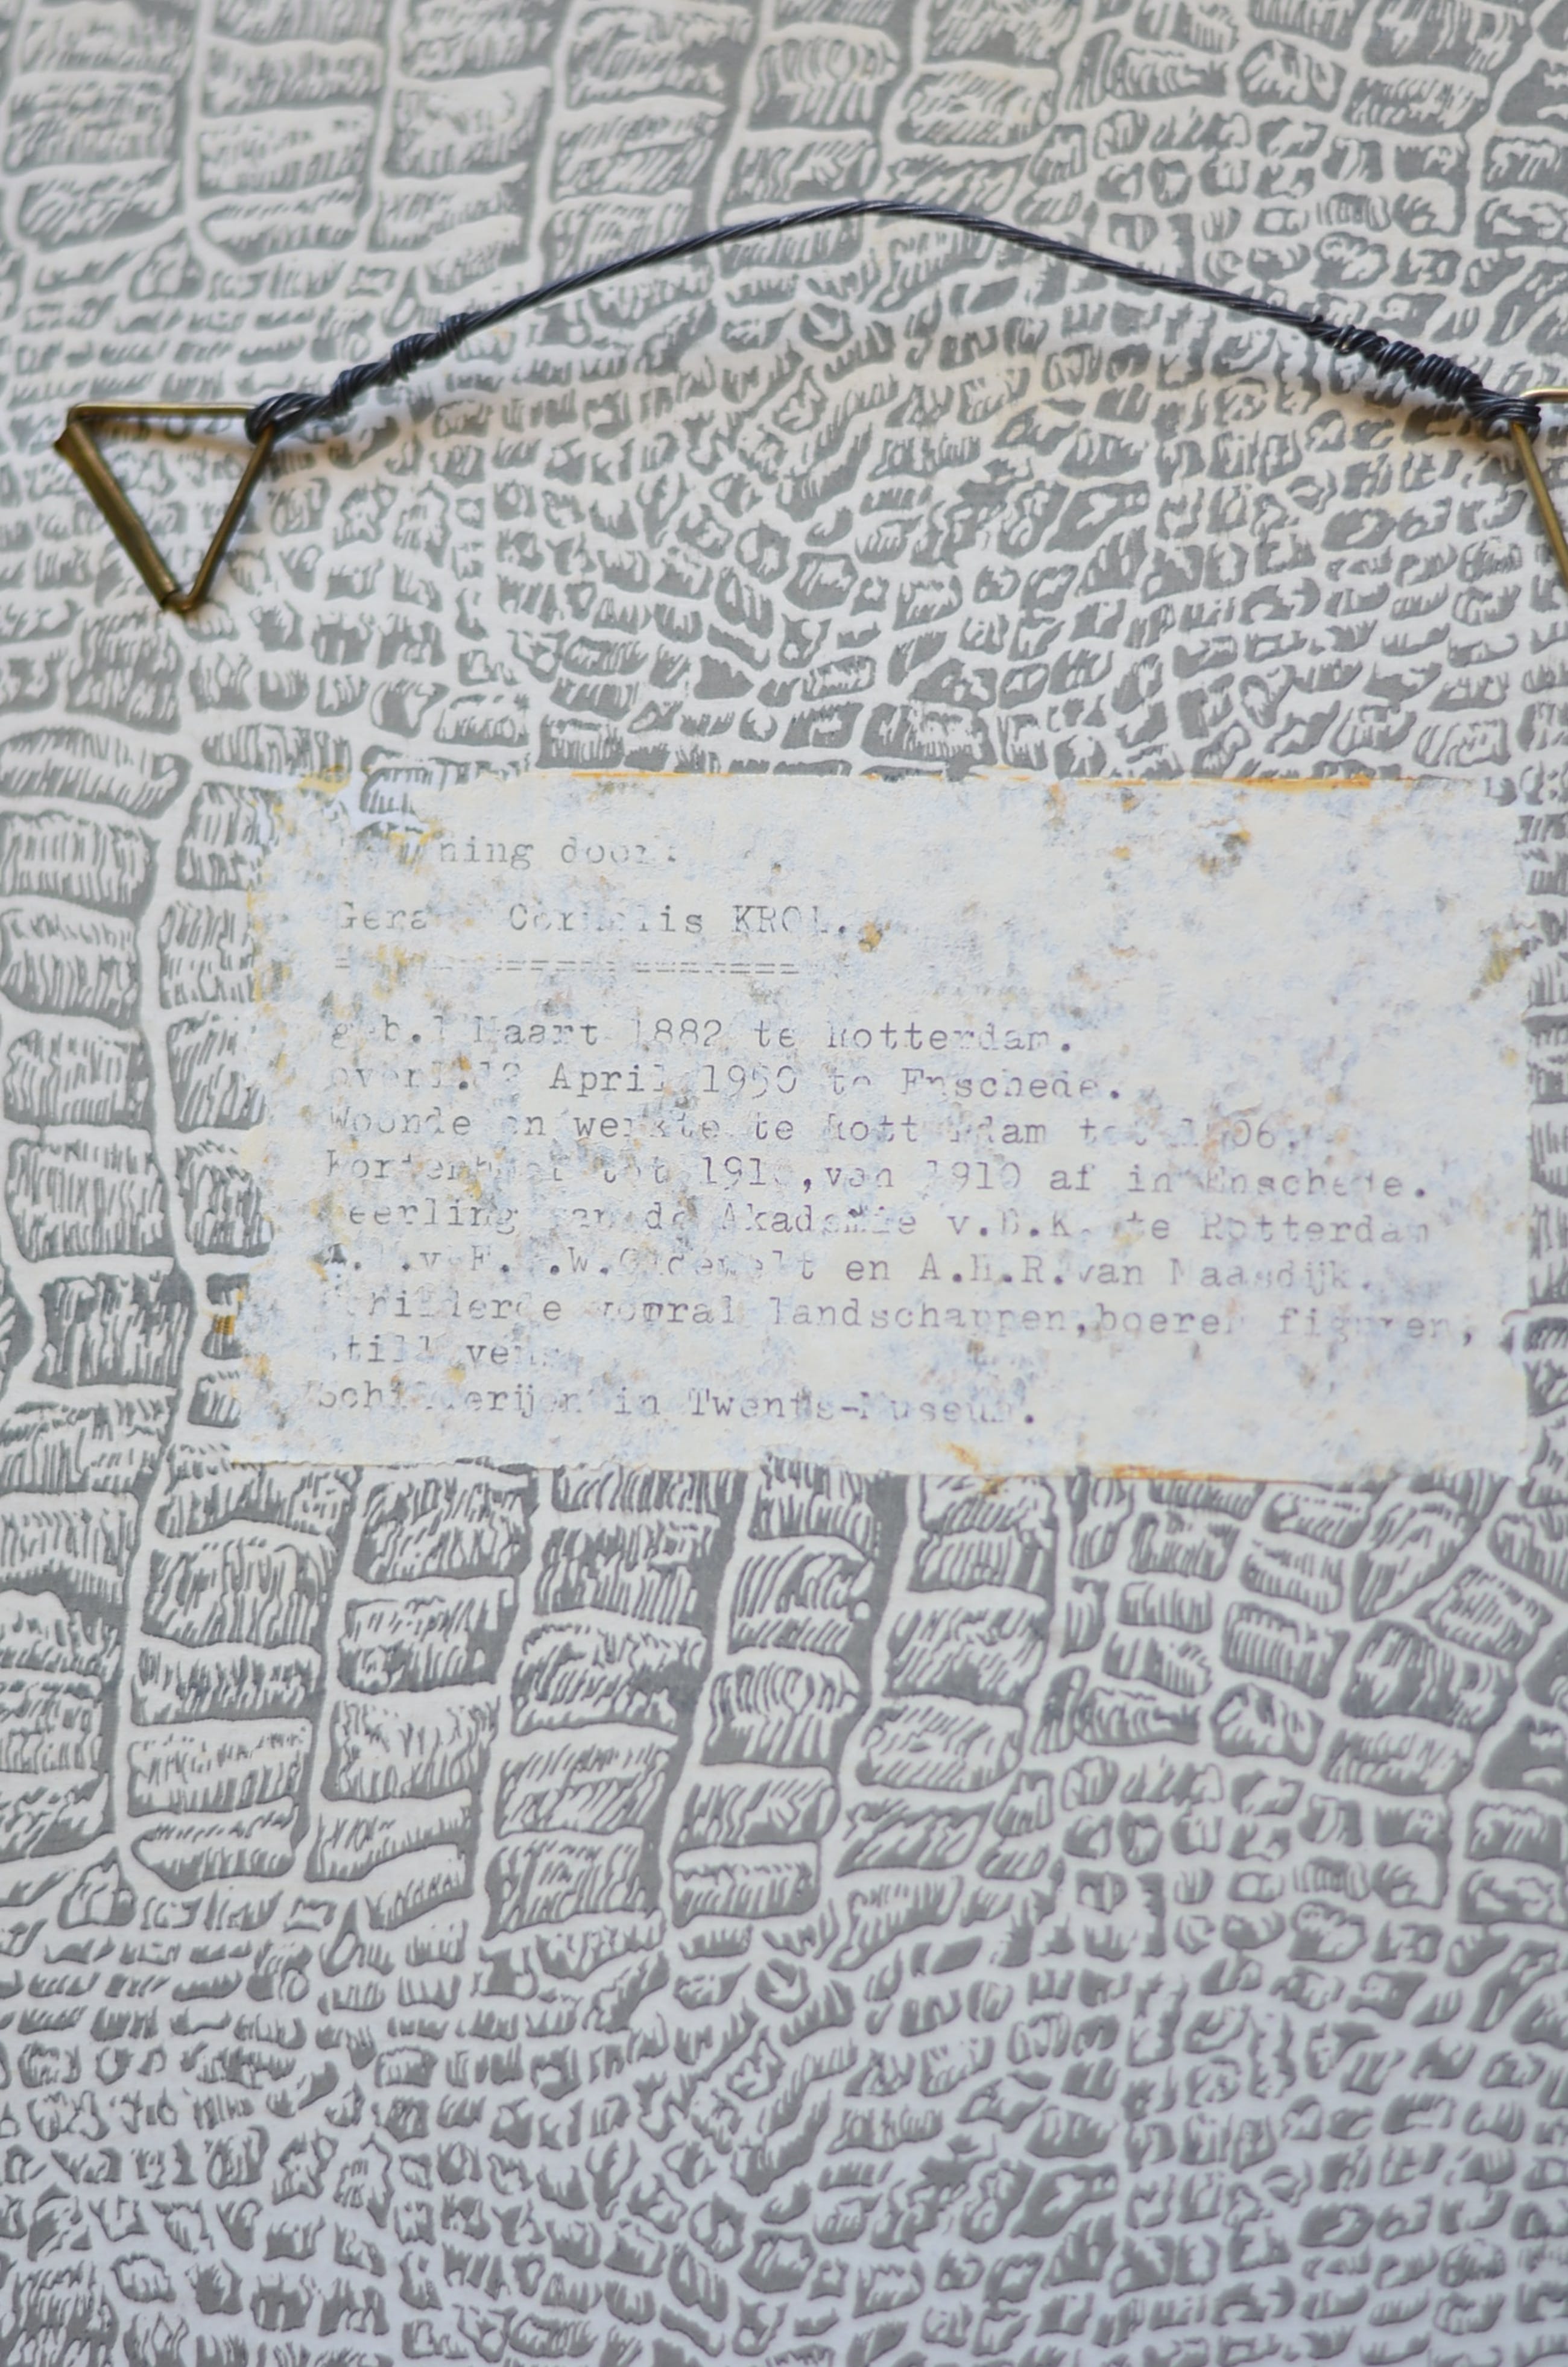 door:
Cornelis KROL.
====================
geb.1 Maart 1882 te Rotterdam.
overl. April 1950 te Enschede.
Woonde en werkte te Rotterdam tot 1906,
tot 1910,van 1910 af in Enschede.
Leerling van de Akademie v.B.K. te Rotterdam
en A.H.R.van Maasdijk.
Schilderde vooral landschappen,boeren figuren,
stillevens
Schilderijen in Twents-Museum.